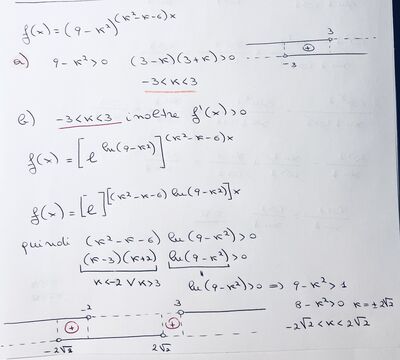 f(x) = (9 - k²)^(k²-k-6)x
a) 9 - k² > 0 (3-k)(3+k) > 0
-3 < k < 3
3
+
-3
b) -3 < k < 3 inoltre f'(x) > 0
f(x) = [e^ln(9-k²)]^(k²-k-6)x
f(x) = [e]^[(k²-k-6) ln(9-k²)]x
quindi (k²-k-6) ln(9-k²) > 0
(k-3)(k+2) ln(9-k²) > 0
k<-2 ∨ k>3 ln(9-k²) > 0 ⇒ 9-k² > 1
8-k²>0 k=±2√2
-2√2 < k < 2√2
-2 3
+ +
-2√2 2√2